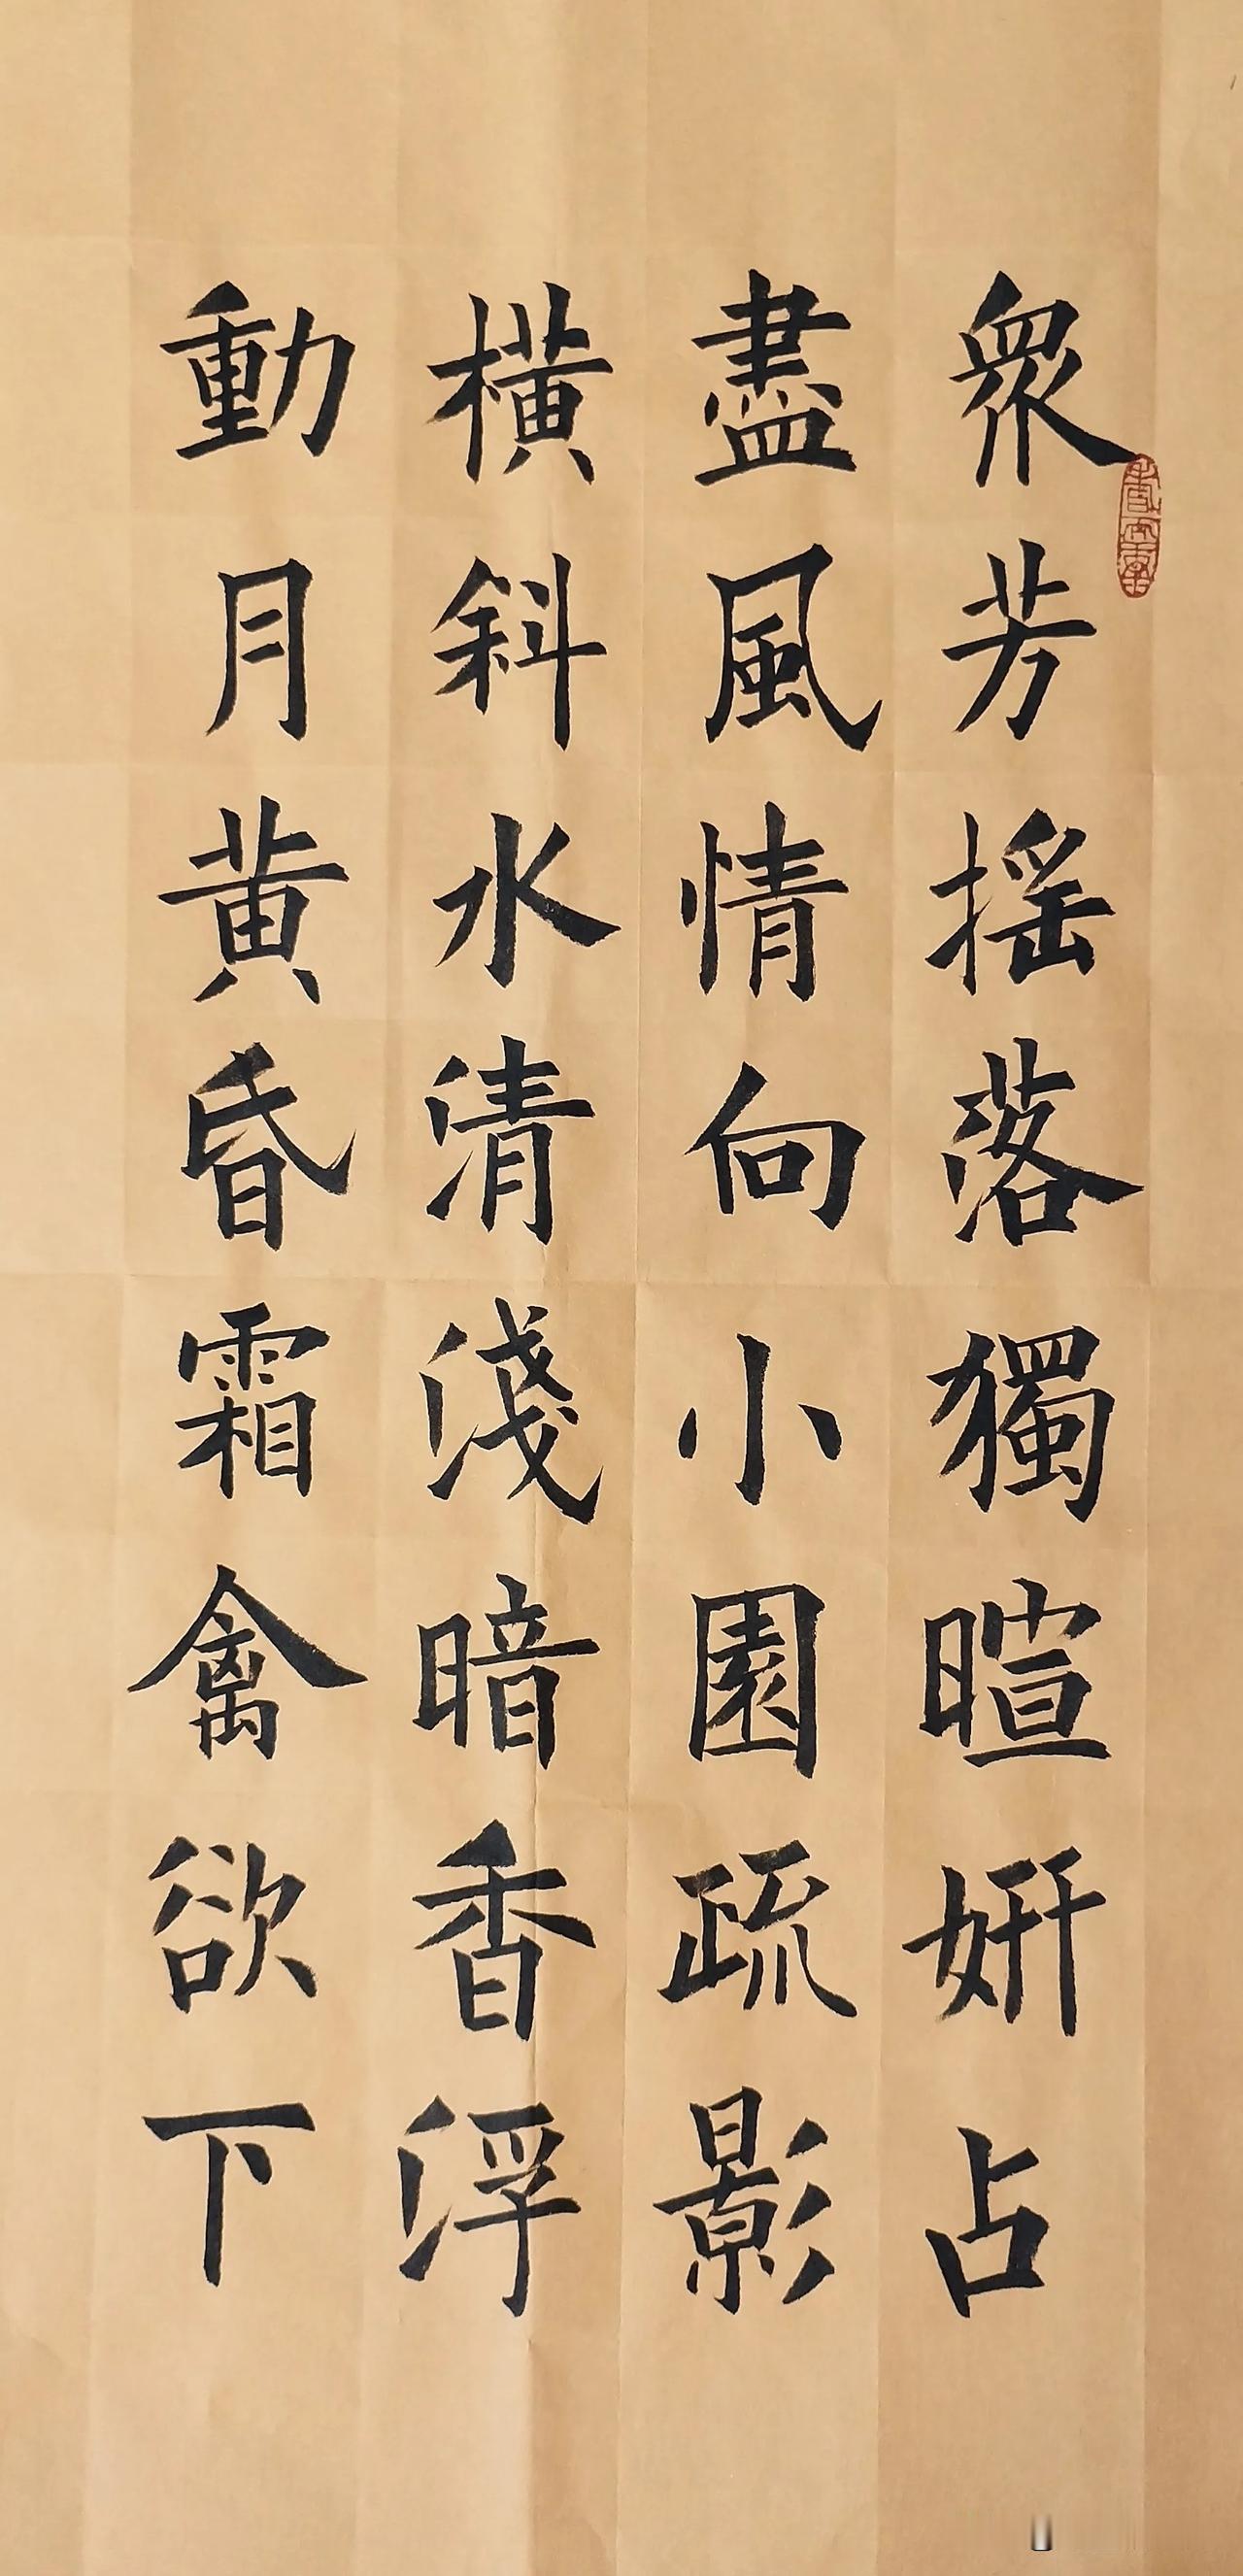 衆芳摇落獨暄妍占
盡風情向小園疏影
橫斜水清淺暗香浮
動月黄昏霜禽欲下